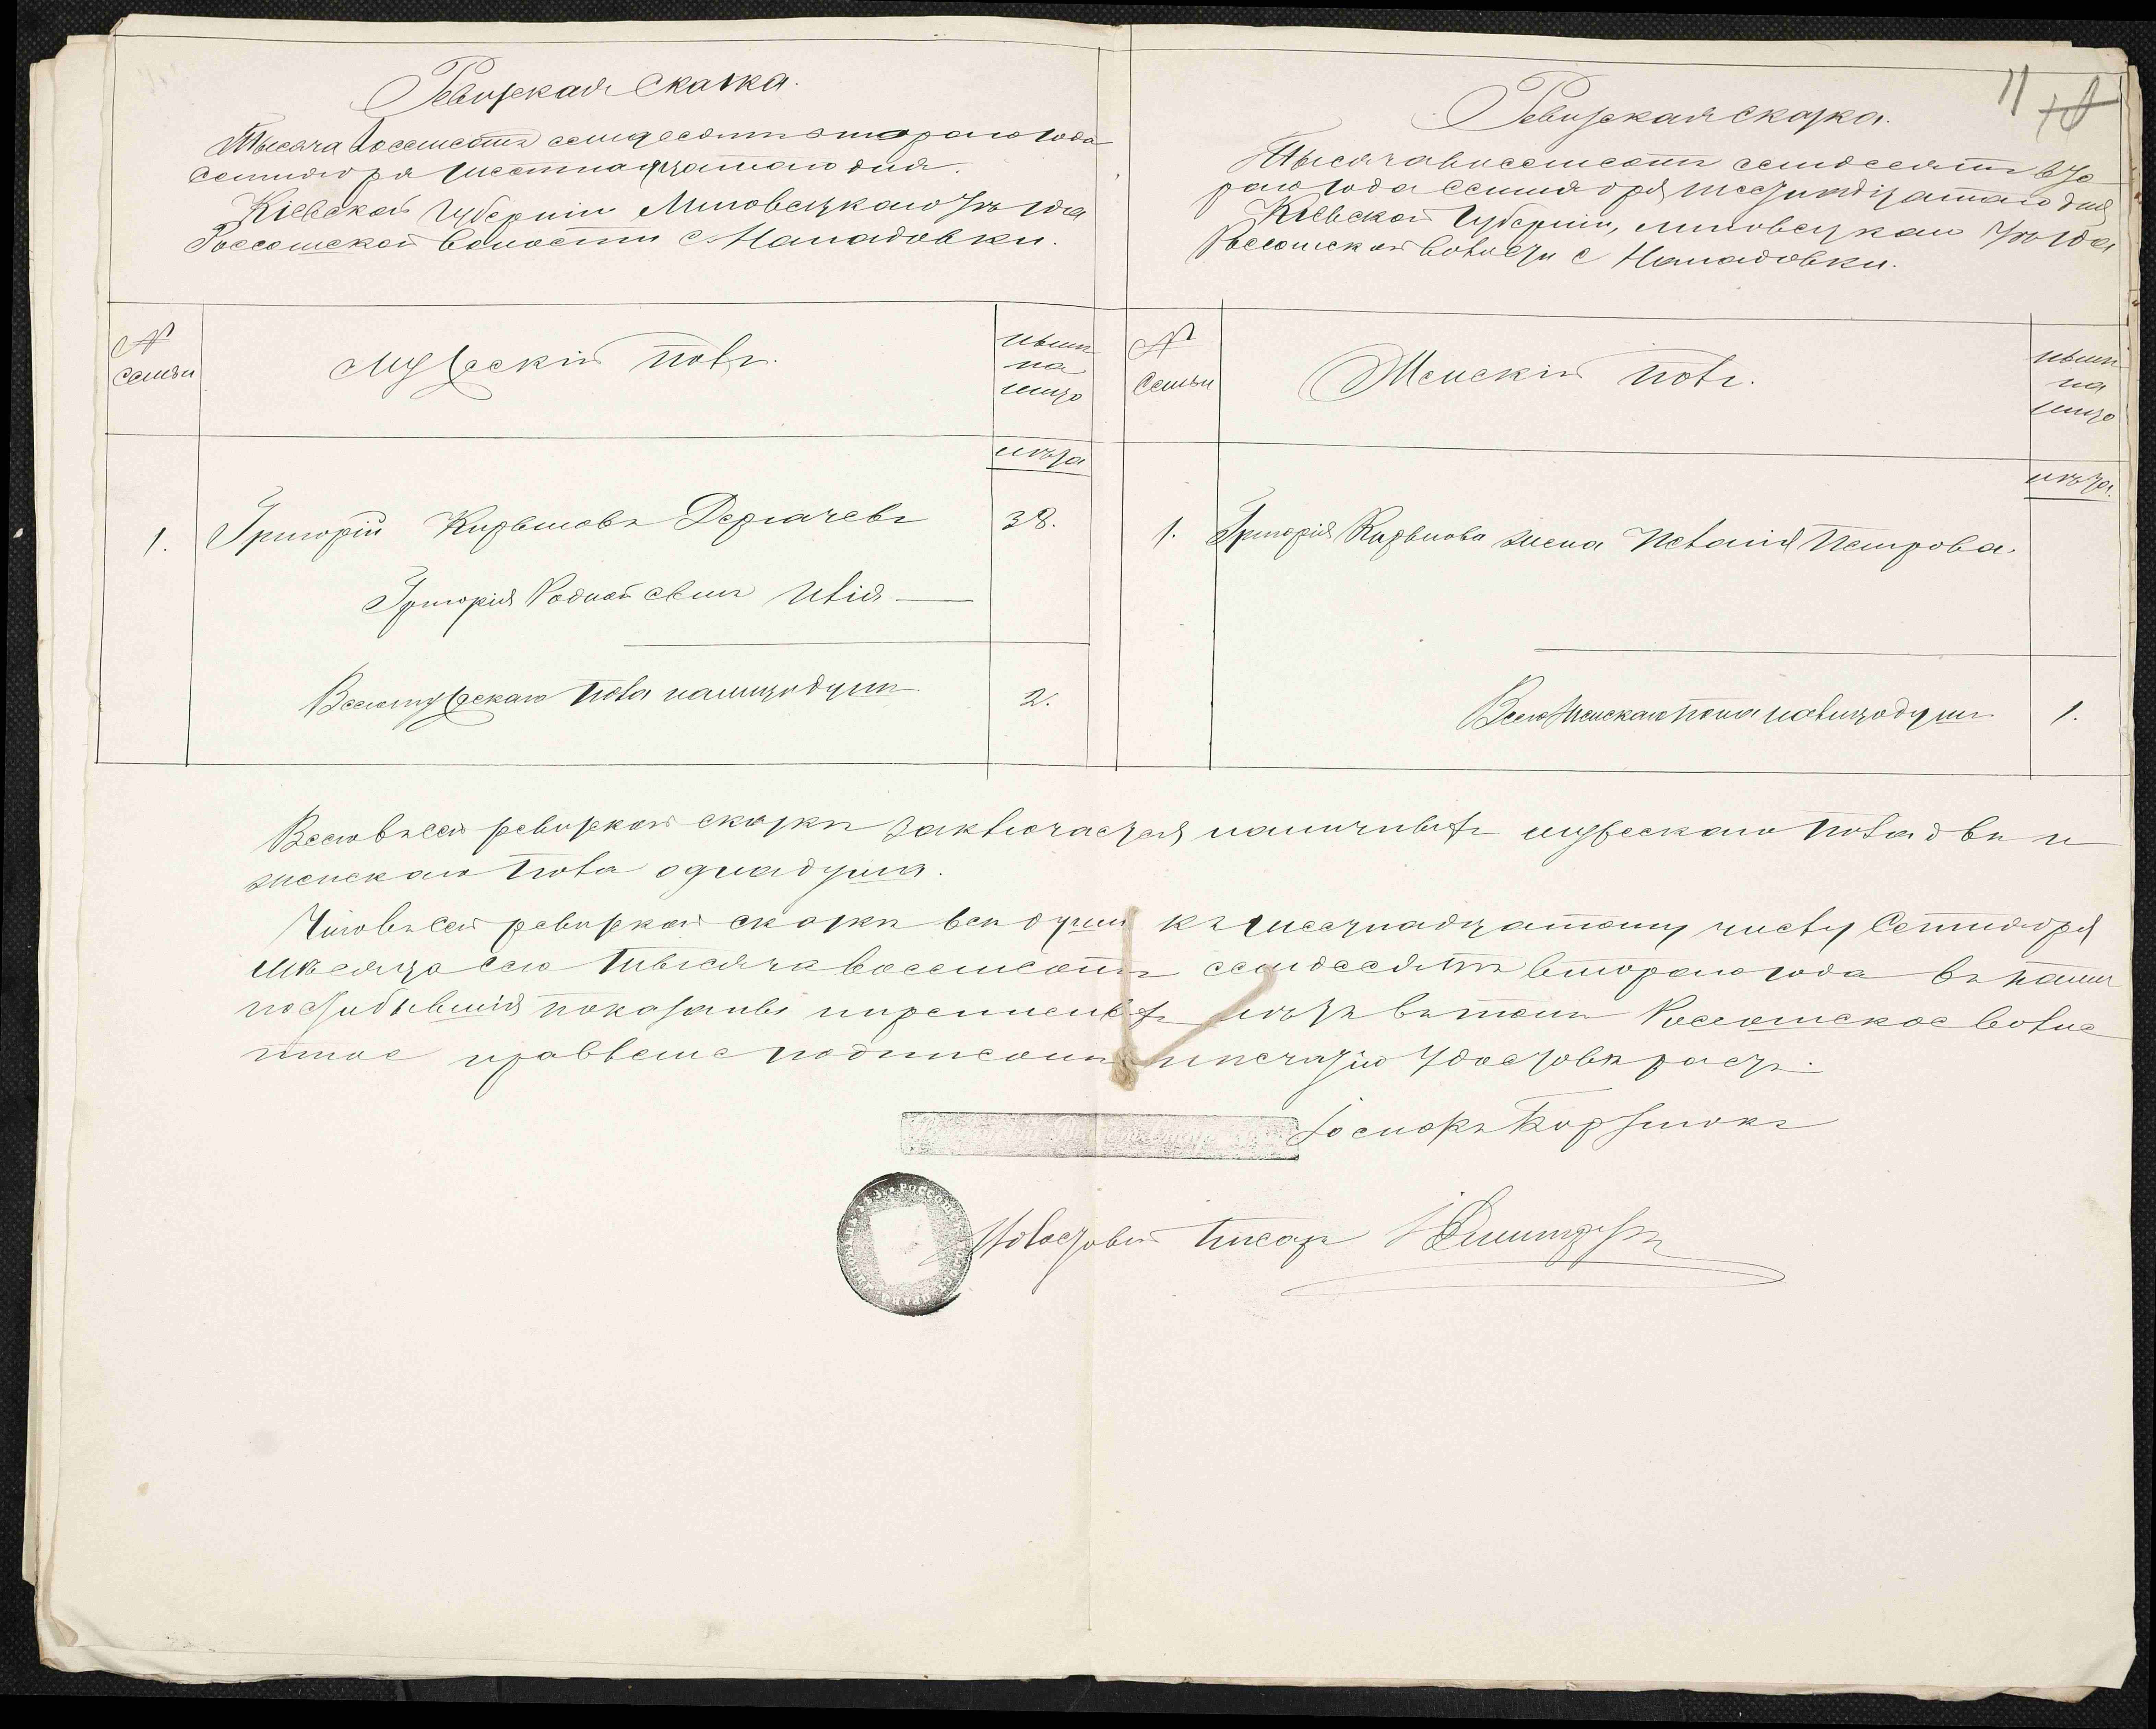 Ревизская сказка.
Тысяча восемсотъ семдесятъ второго года
сентября шестнадцатаго дня.
Кіевской Губерніи Липовецкаго Уѣзда
Россошской волости с. Нападовки.
№ семьи
Мужескій полъ.
нынѣ на лицо
лѣта
1. Григорій Кузьмовъ Дергачевъ 38.
Григорія Родной сынъ Илія —
Всего мужескаго пола налицо душъ 2.
11 10
Ревизская сказка.
Тысяча восемсотъ семдесятъ вто
раго года сентября шестнадцатаго дня
Кіевской Губерніи, Липовецкаго Уѣзда
Россошской волости с Нападовки.
№ семьи
Женскій полъ.
нынѣ на лицо
лѣта.
1. Григорія Кузьмова жена Петрова.
Всего женскаго пола налицо душъ 1.
Всего въ сей ревизской сказкѣ заключается наличныхъ мужескаго пола двѣ и
женскаго пола одна душа.
Что въ сей ревизской сказкѣ всѣ души къ шестнадцатому числу Сентября
мѣсяца сего тысяча восемсотъ семдесятъ второго года въ
показаны лѣта въ томъ Россошское волос
тное правленіе подписомъ и печатью удостовѣряетъ.
Волостовой писарь